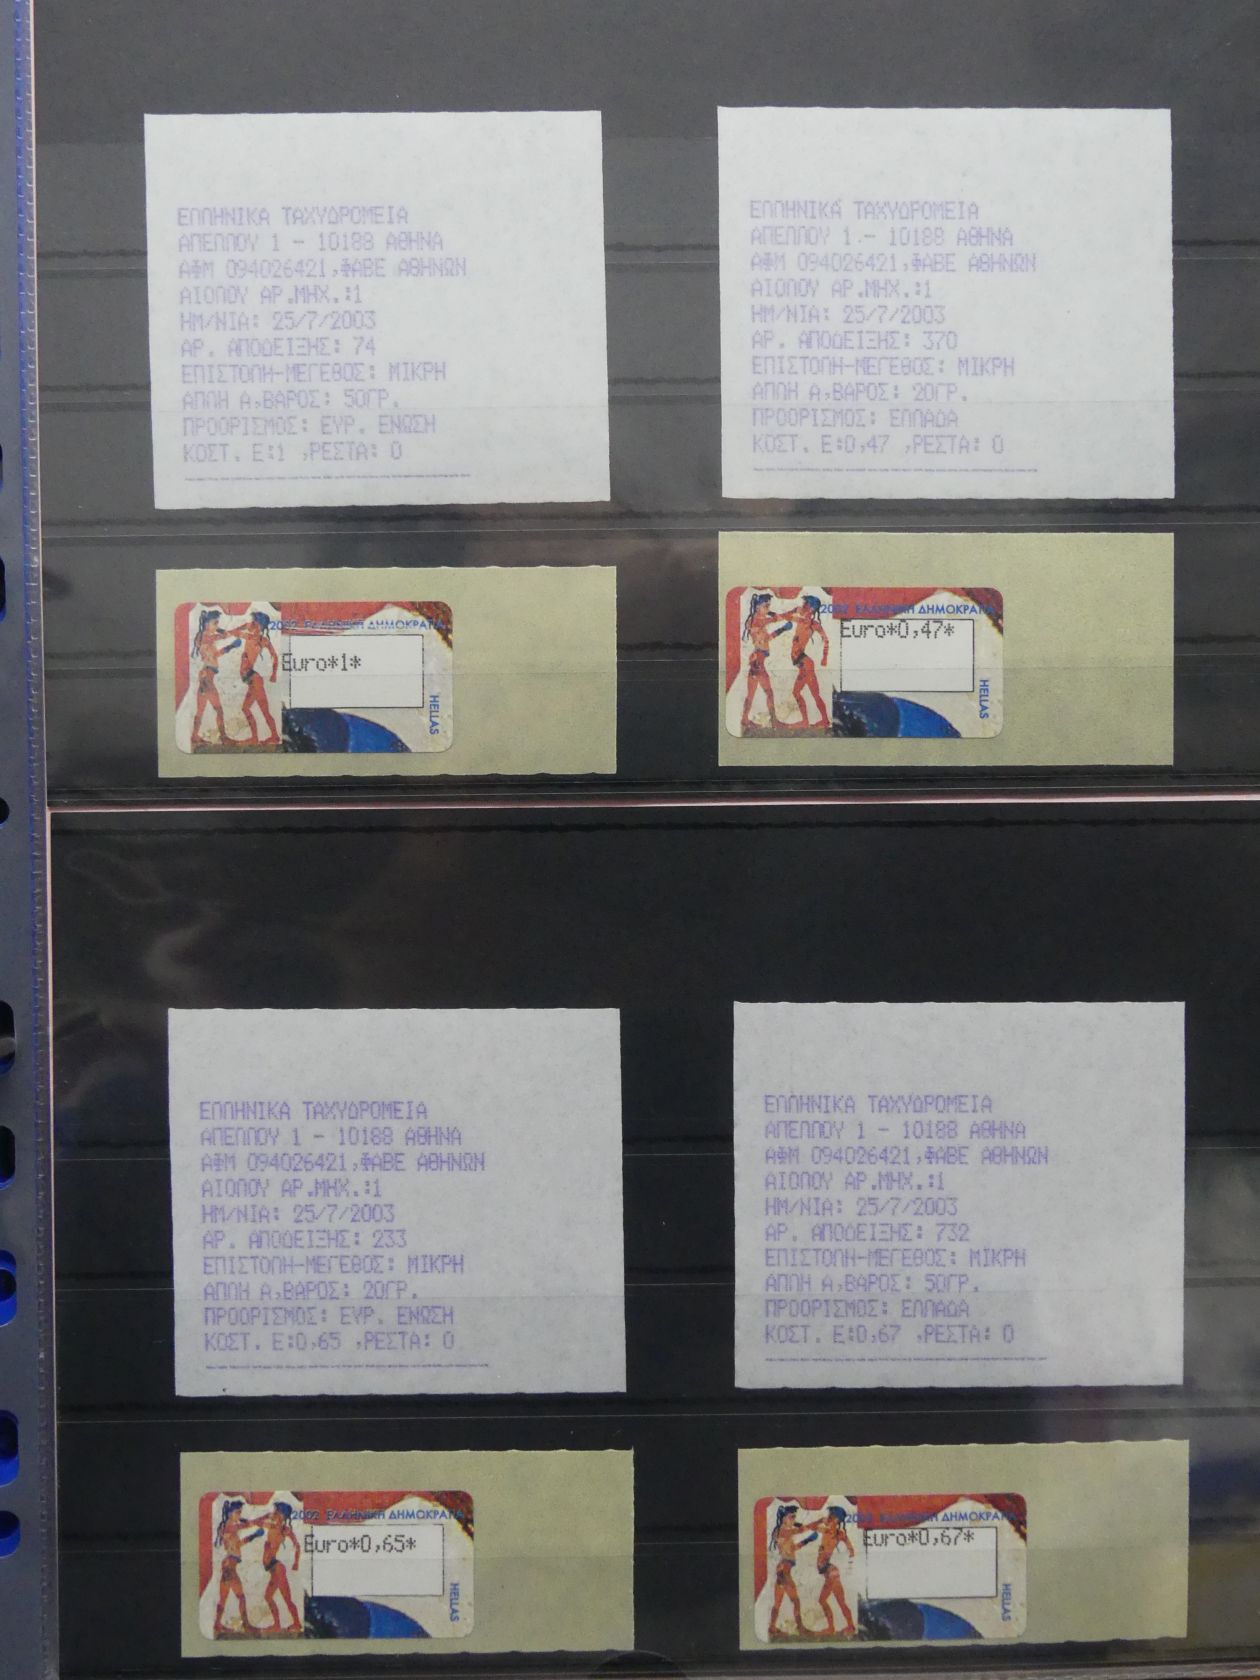 ΕΛΛΗΝΙΚΑ ΤΑΧΥΔΡΟΜΕΙΑ
ΑΠΕΛΛΟΥ 1 - 10188 ΑΘΗΝΑ
ΑΦΜ 094026421,ΦΑΒΕ ΑΘΗΝΩΝ
ΑΙΟΛΟΥ ΑΡ.ΜΗΧ.:1
ΗΜ/ΝΙΑ: 25/7/2003
ΑΡ. ΑΠΟΔΕΙΞΗΣ: 74
ΕΠΙΣΤΟΛΗ-ΜΕΓΕΘΟΣ: ΜΙΚΡΗ
ΑΠΛΗ Α,ΒΑΡΟΣ: 50ΓΡ.
ΠΡΟΟΡΙΣΜΟΣ: ΕΥΡ. ΕΝΩΣΗ
ΚΟΣΤ. Ε:1 ,ΡΕΣΤΑ: 0
ΕΛΛΗΝΙΚΑ ΤΑΧΥΔΡΟΜΕΙΑ
ΑΠΕΛΛΟΥ 1 - 10188 ΑΘΗΝΑ
ΑΦΜ 094026421,ΦΑΒΕ ΑΘΗΝΩΝ
ΑΙΟΛΟΥ ΑΡ.ΜΗΧ.:1
ΗΜ/ΝΙΑ: 25/7/2003
ΑΡ. ΑΠΟΔΕΙΞΗΣ: 370
ΕΠΙΣΤΟΛΗ-ΜΕΓΕΘΟΣ: ΜΙΚΡΗ
ΑΠΛΗ Α,ΒΑΡΟΣ: 20ΓΡ.
ΠΡΟΟΡΙΣΜΟΣ: ΕΛΛΑΔΑ
ΚΟΣΤ. Ε:0,47 ,ΡΕΣΤΑ: 0
2002 ΕΛΛΗΝΙΚΗ ΔΗΜΟΚΡΑΤΙΑ
Euro*1*
HELLAS
2002 ΕΛΛΗΝΙΚΗ ΔΗΜΟΚΡΑΤΙΑ
Euro*0,47*
HELLAS
ΕΛΛΗΝΙΚΑ ΤΑΧΥΔΡΟΜΕΙΑ
ΑΠΕΛΛΟΥ 1 - 10188 ΑΘΗΝΑ
ΑΦΜ 094026421,ΦΑΒΕ ΑΘΗΝΩΝ
ΑΙΟΛΟΥ ΑΡ.ΜΗΧ.:1
ΗΜ/ΝΙΑ: 25/7/2003
ΑΡ. ΑΠΟΔΕΙΞΗΣ: 233
ΕΠΙΣΤΟΛΗ-ΜΕΓΕΘΟΣ: ΜΙΚΡΗ
ΑΠΛΗ Α,ΒΑΡΟΣ: 20ΓΡ.
ΠΡΟΟΡΙΣΜΟΣ: ΕΥΡ. ΕΝΩΣΗ
ΚΟΣΤ. Ε:0,65 ,ΡΕΣΤΑ: 0
ΕΛΛΗΝΙΚΑ ΤΑΧΥΔΡΟΜΕΙΑ
ΑΠΕΛΛΟΥ 1 - 10188 ΑΘΗΝΑ
ΑΦΜ 094026421,ΦΑΒΕ ΑΘΗΝΩΝ
ΑΙΟΛΟΥ ΑΡ.ΜΗΧ.:1
ΗΜ/ΝΙΑ: 25/7/2003
ΑΡ. ΑΠΟΔΕΙΞΗΣ: 732
ΕΠΙΣΤΟΛΗ-ΜΕΓΕΘΟΣ: ΜΙΚΡΗ
ΑΠΛΗ Α,ΒΑΡΟΣ: 50ΓΡ.
ΠΡΟΟΡΙΣΜΟΣ: ΕΛΛΑΔΑ
ΚΟΣΤ. Ε:0,67 ,ΡΕΣΤΑ: 0
2002 ΕΛΛΗΝΙΚΗ ΔΗΜΟΚΡΑΤΙΑ
Euro*0,65*
HELLAS
2002 ΕΛΛΗΝΙΚΗ ΔΗΜΟΚΡΑΤΙΑ
Euro*0,67*
HELLAS